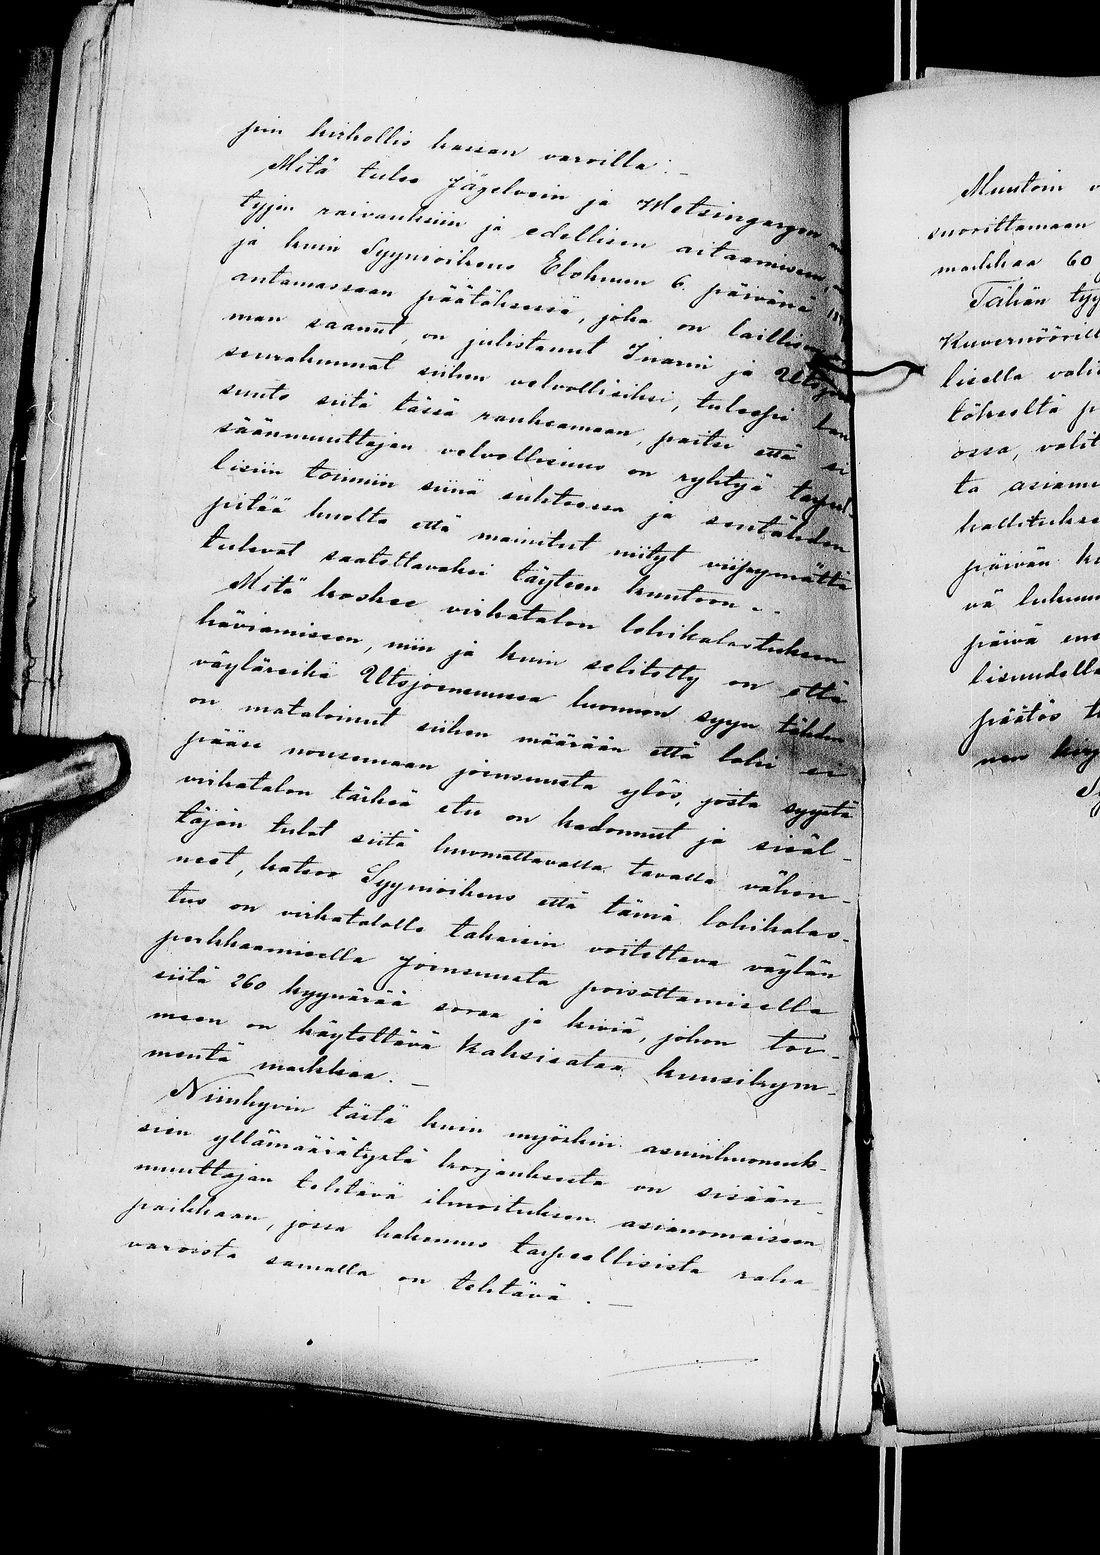 pin kirkollis kassan varoilla. —
Mitä tulee Jägelvein ja Metsingargon
tyjen raivauksiin ja edellisen aitaamiseen,
ja kuin Syynioikeus Elokuun 6. päivänä
antamassaan päätöksessä, joka on laillisen
man saanut, on julistanut Inarin ja Utsjoen
seurakunnat siihen velvollisiksi, tuleepi
suute siitä tässä raukeamaan, paitsi että si
säänmuuttajan velvollisuus on ryhtyä tarpeel-
lisiin toimiin siinä suhteessa ja sentähden
pitää huolta että mainitut niityt viipymättä
tulevat saatettavaksi täyteen kuntoon. -
Mitä koskee virkatalon lohikalastuksen
häviämiseen, niin ja kuin selitetty on että
väyläreikä Utsjoensuussa luonnon syyn tähden
on mataloinut siihen määrään että lohi ei
pääse nousemaan joensuusta ylös, josta syystä
virkatalon tärkeä etu on kadonnut ja sisäl-
täjän tulot siitä huomattavalla tavalla vähen-
neet, katsoo Syynioikeus että tämä lohikalas-
tus on virkatalolle takaisin voitettava väylän
perkkaamisella Joensuusta poisottamisella
siitä 260 kyynärää soraa ja kiviä, johon toi-
meen on käytettävä kaksisataa kuusikym-
mentä markkaa. —
Niinhyvin tästä kuin myöskin asuinhuonuk-
sien yllämäärätystä korjauksesta on sisään-
muuttajan tehtävä ilmoituksen asianomaiseen
paikkaan, jossa hakemus tarpeellisista raha
varoista samalla on tehtävä. —
Muutoin
suorittamaan
markkaa 60
Tähän
Kuvernöörill
lisella vali
tökseltä p
ossa, valit
ta asiam
hallitukse
päivän
vä luku
päivä en
lisuudella
päätös t
nen kirj